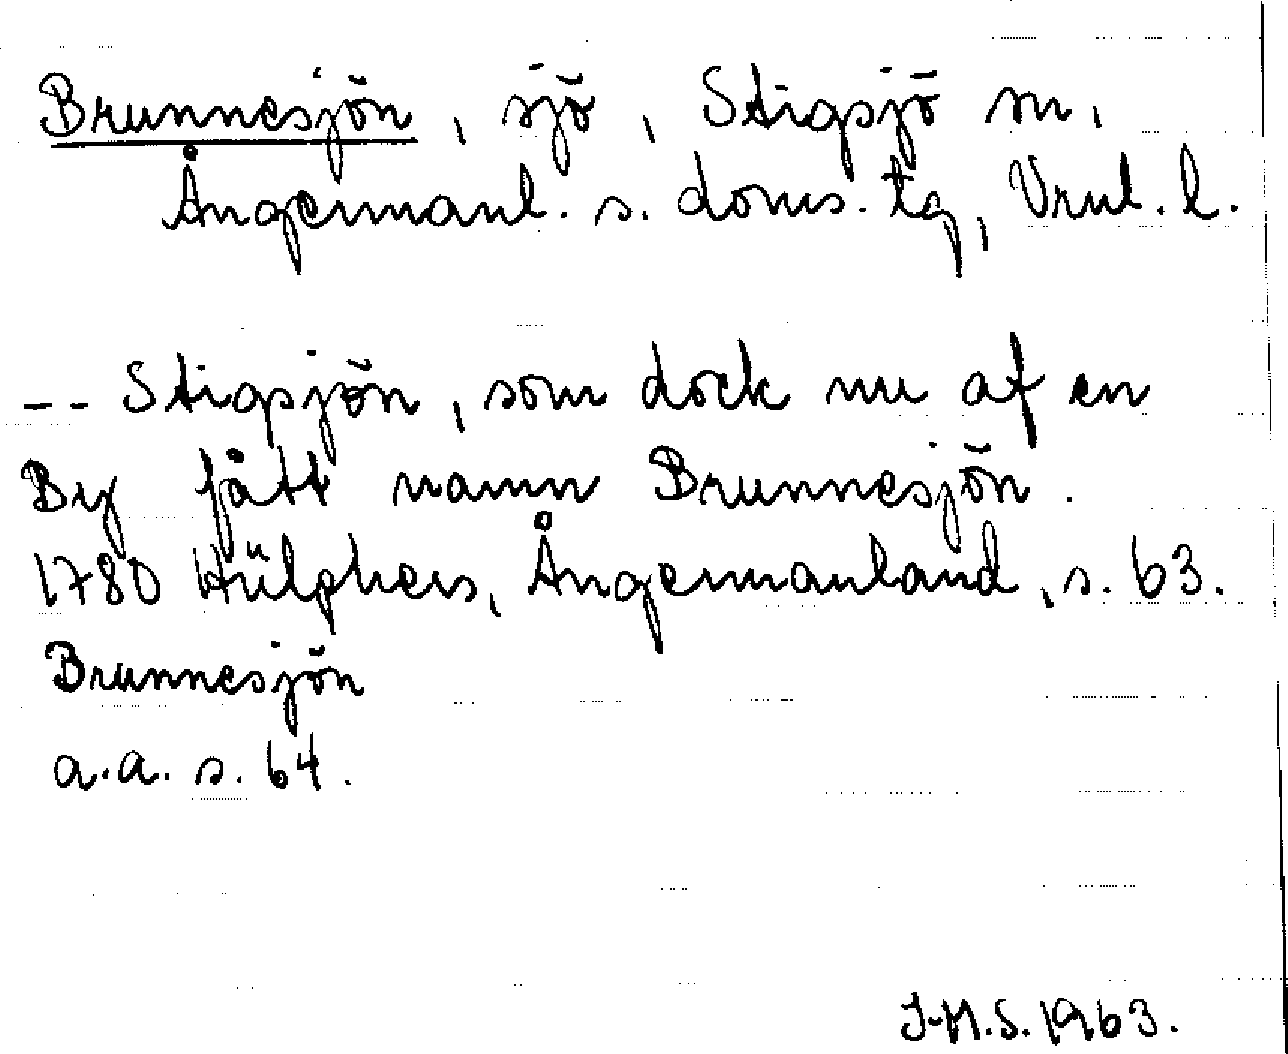 Brunnesjön, sjö, Stigsjö sn,
Ångermanl. s. doms. tg, Vrnl. l.
-- Stigsjön, som dock nu af en
By fått namn Brunnesjön.
1780 Hülphers, Ångermanland, s. 63.
Brunnesjön
a.a. s. 64.
J-M.S. 1963.